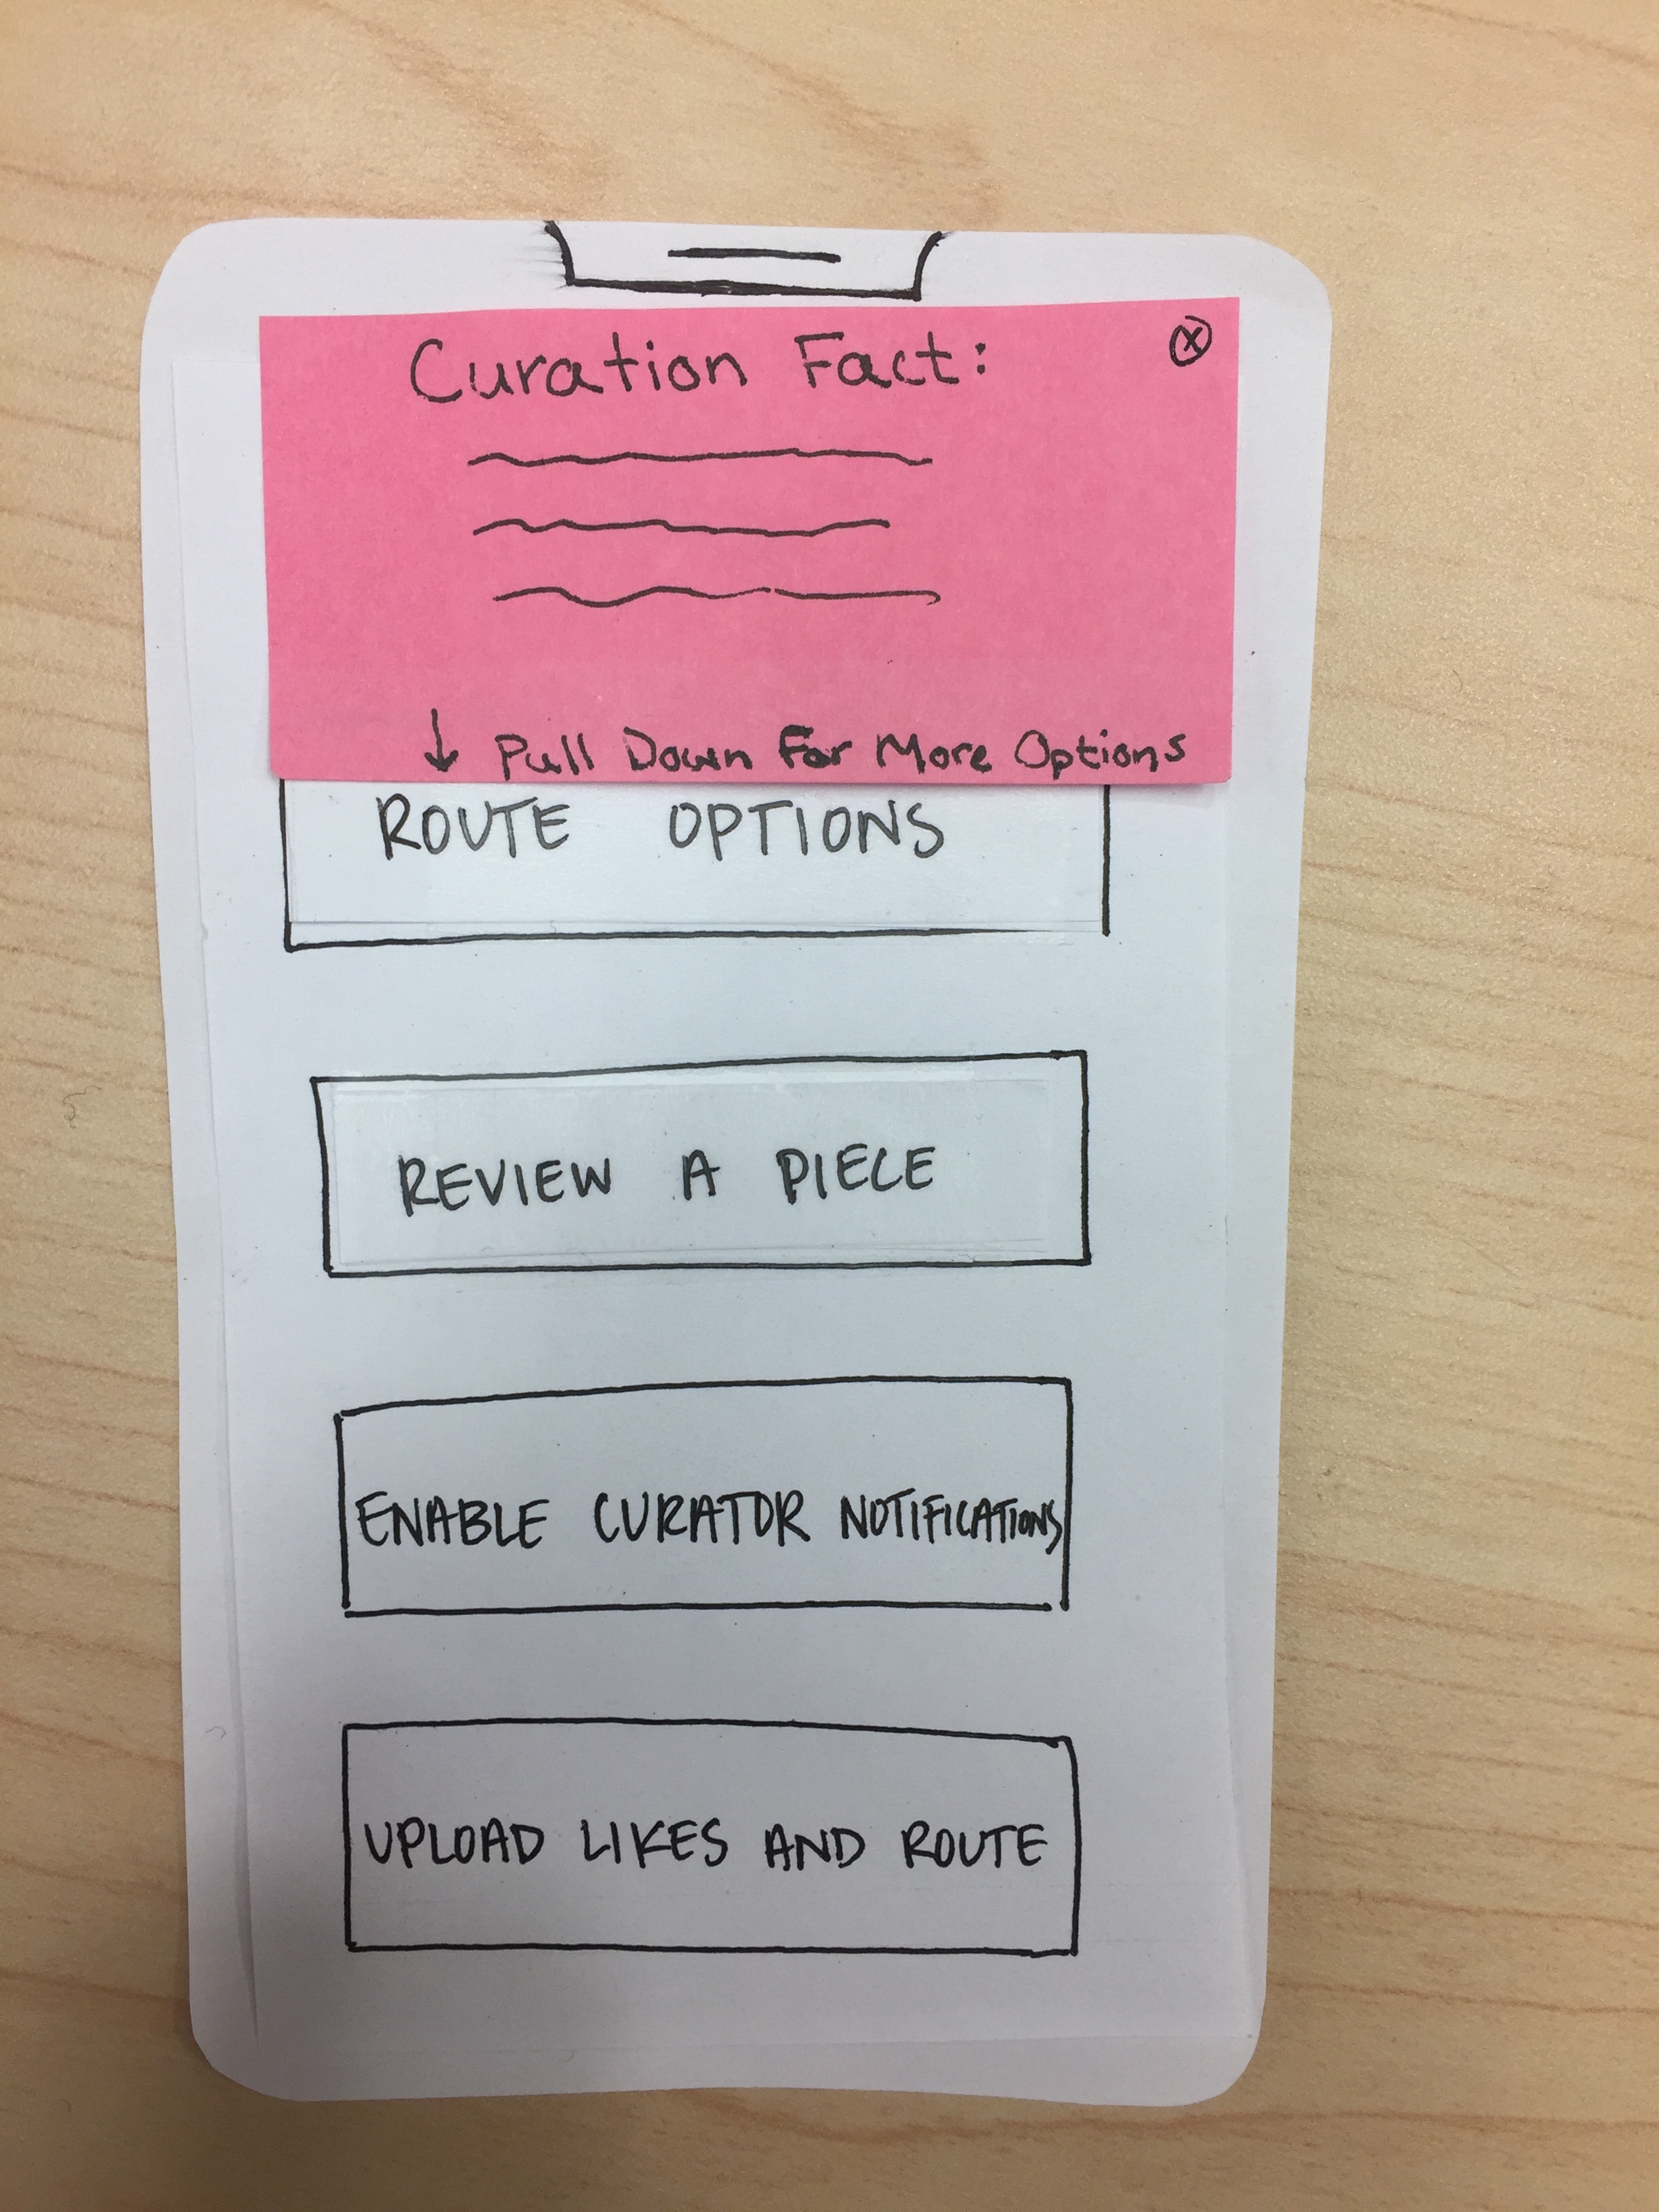 Curation Fact:
X
↓ Pull Down For More Options
ROUTE OPTIONS
REVIEW A PIECE
ENABLE CURATOR NOTIFICATIONS
UPLOAD LIKES AND ROUTE